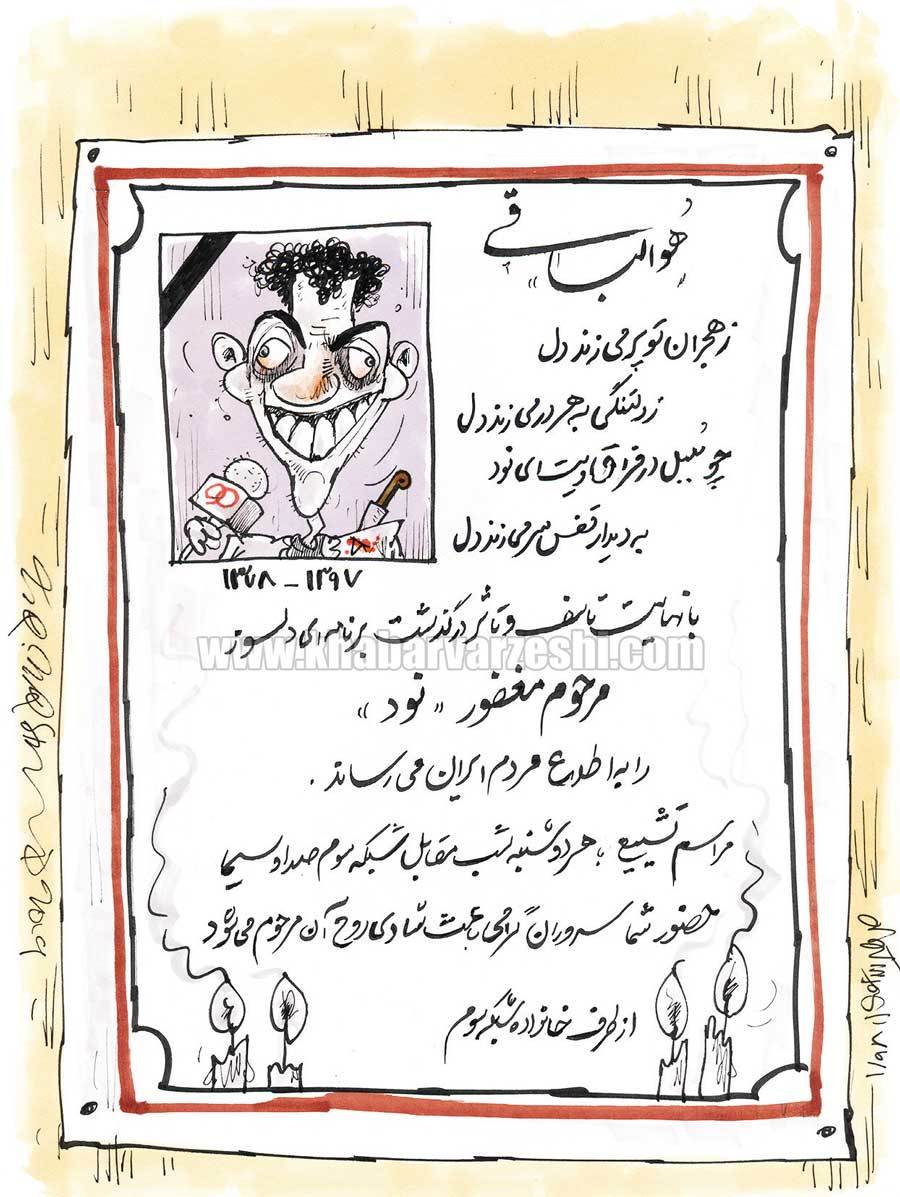 «هوالباقی»
ز هجران تو پر می زند دل
ز دلتنگی به هر در می زند دل
چو بلبل در فراقت ای نود
به دیدار قفس سر می زند دل
90
۱۳۷۸ - ۱۳۹۷
با نهایت تاسف و تاثر درگذشت برنامه ای دلسوز
www.khabarvarzeshi.com
مرحوم مغفور «نود»
را به اطلاع مردم ایران می رساند.
مراسم تشییع: هر دوشنبه شب مقابل شبکه سوم صدا و سیما
حضور شما سروران گرامی باعث شادی روح آن مرحوم می شود
از طرف خانواده شبکه سوم